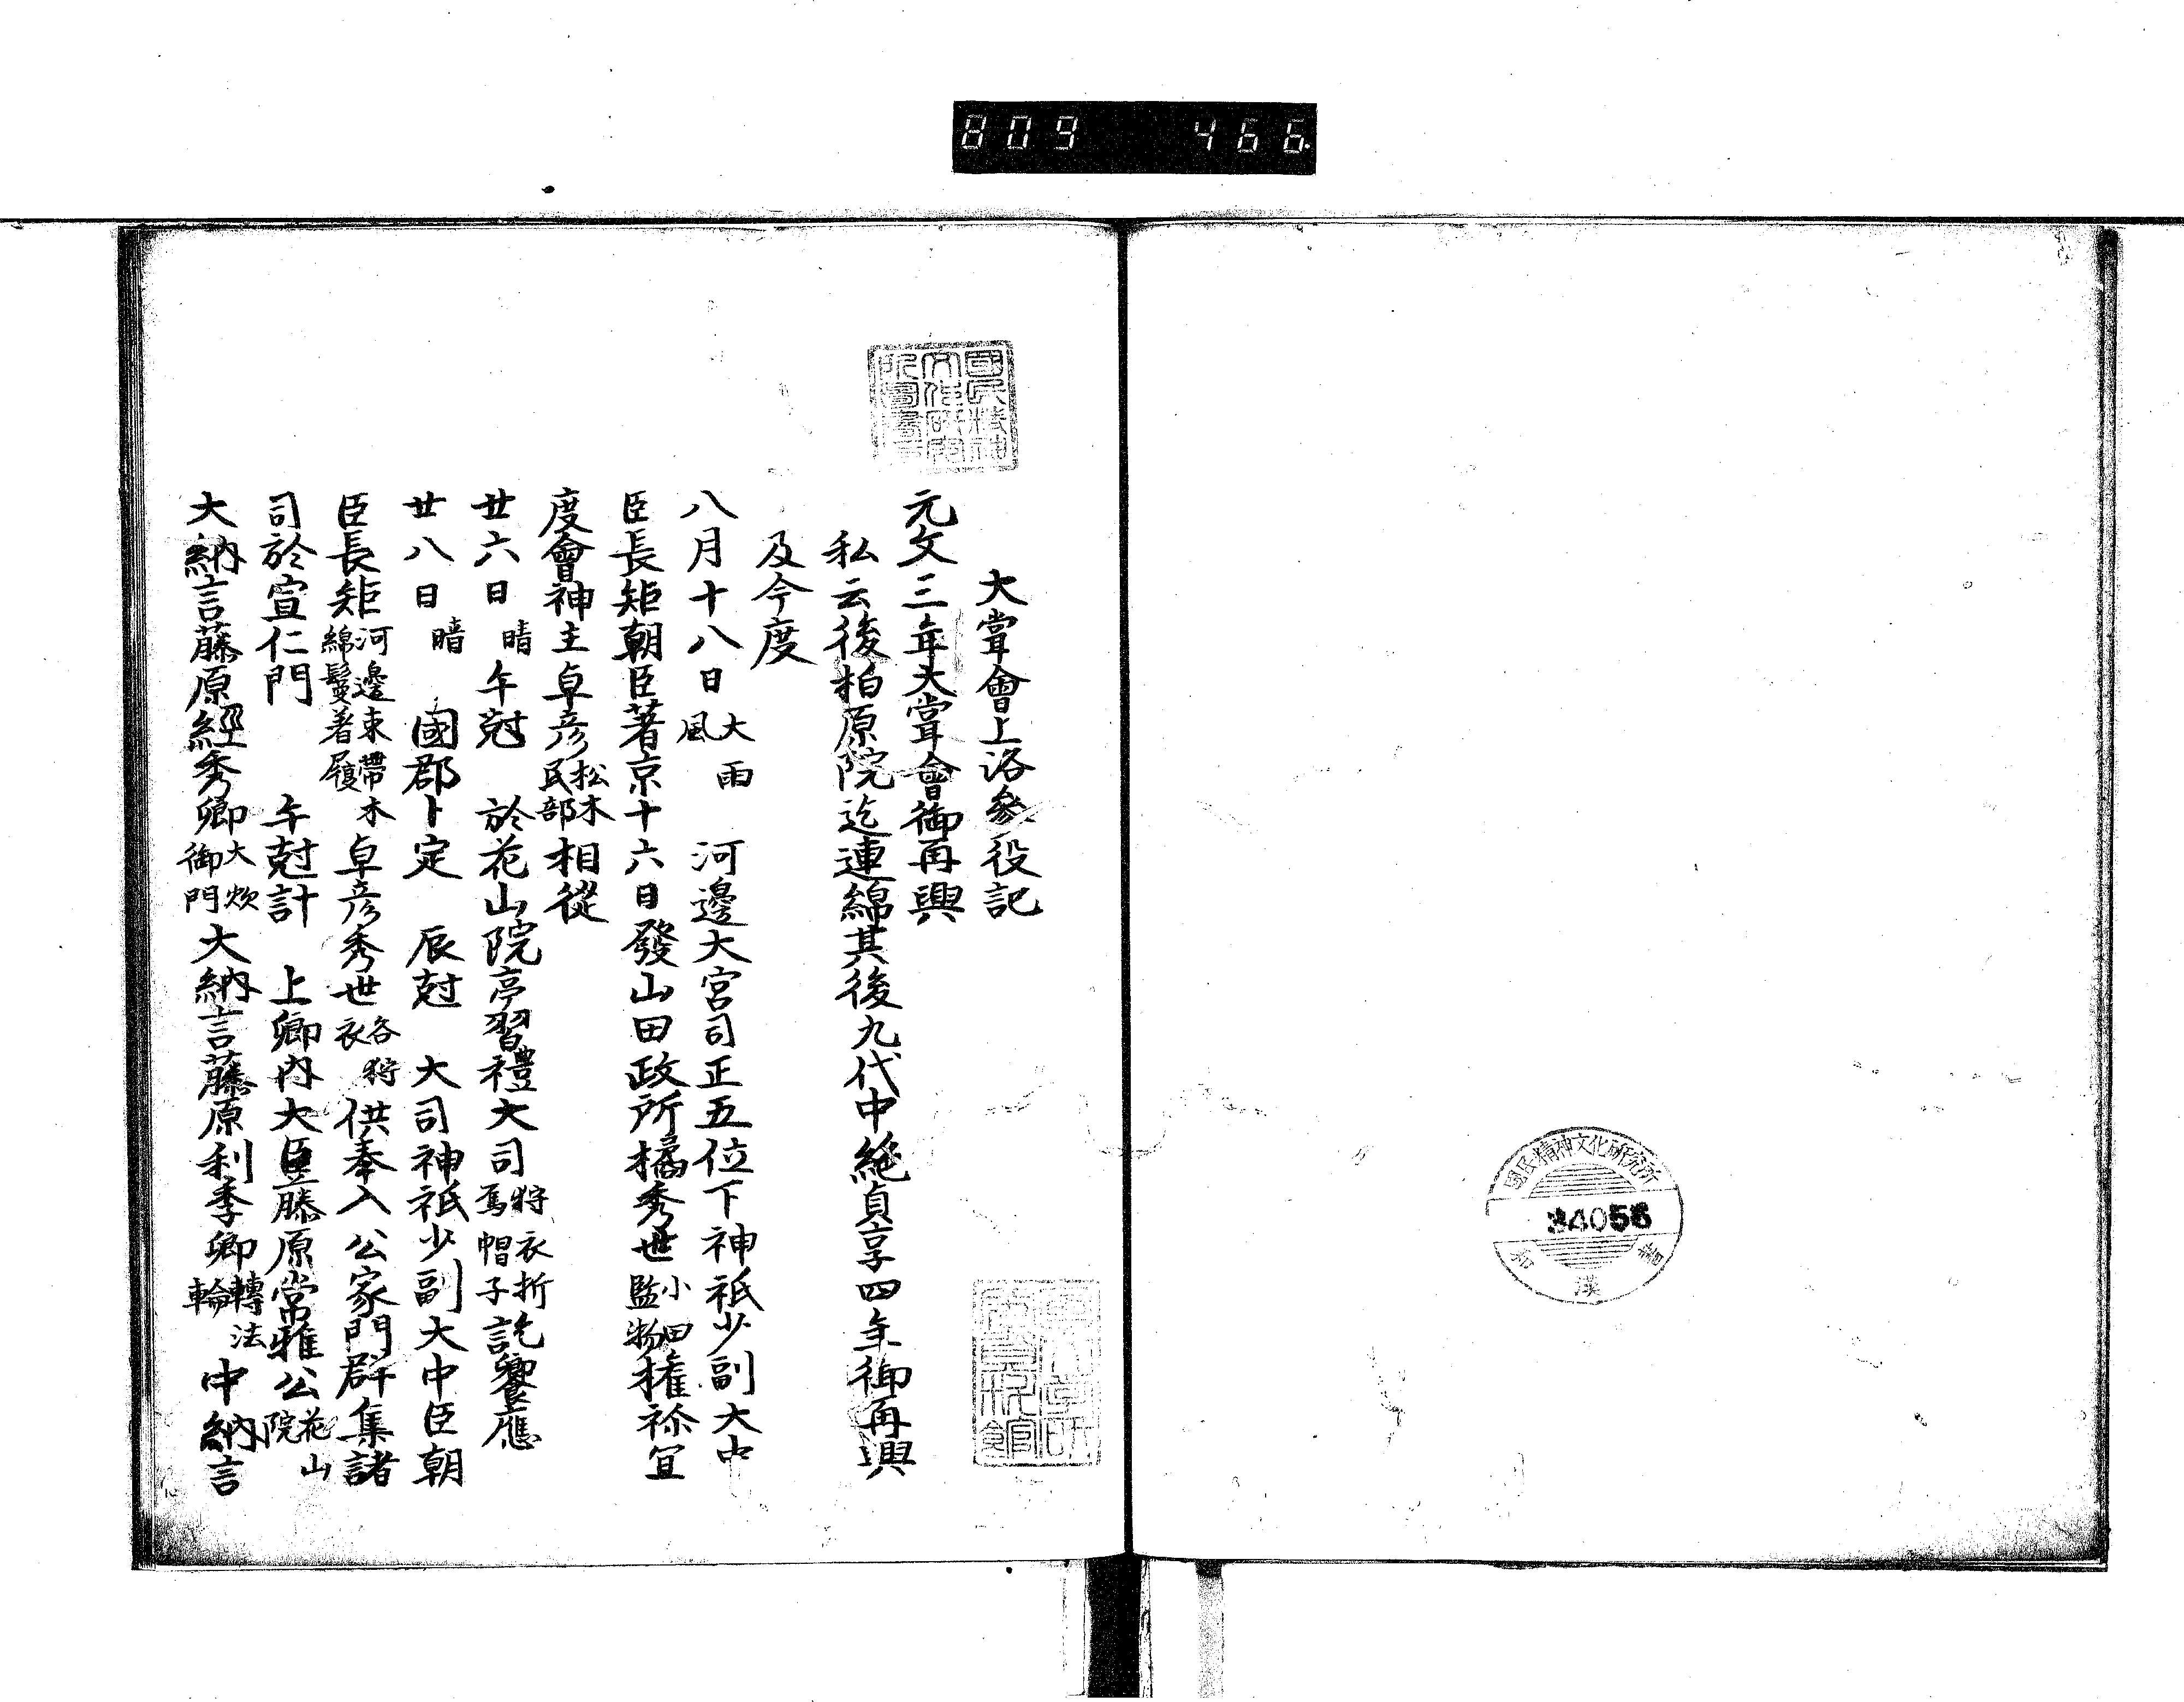 809 466
國民精神文化研究所
34056
漢
大甞會上洛參役記
元文三年大甞會御再興
私云後柏原院迄連綿其後九代中絶貞享四年御再興
及今度
八月十八日 大雨風 河邊大宮司正五位下神祇少副大中
臣長矩朝臣著京十六日發山田政所橘秀世 小田監物 権祢宜
度會神主卓彦 松木民部 相從
廿六日 晴 午尅 於花山院亭習禮大司 狩衣折烏帽子 訖饗應
廿八日 晴 國郡卜定 辰尅 大司神祇少副大中臣朝
臣長矩 河邊束帶木綿鬘著履 卓彦秀世 各狩衣 供奉入公家門群集諸
司於宣仁門 午尅計 上卿内大臣藤原常雅公 花山院
大納言藤原經秀卿 大炊御門 大納言藤原利季卿 轉法輪 中納言